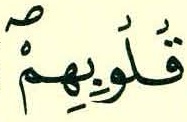 قُلُوبِهِمْۖ